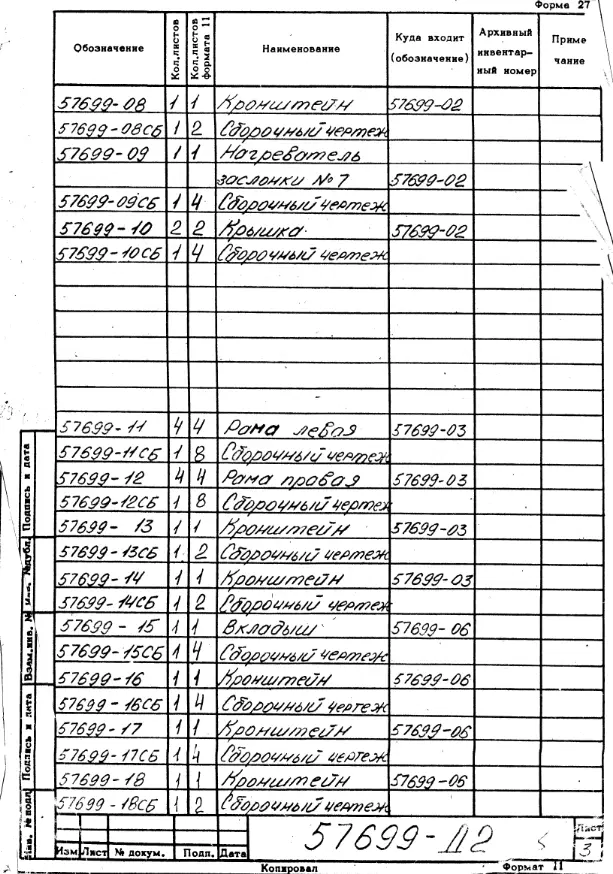 Форма 27
Обозначение Кол.листов Кол.листов формата 11 Наименование Куда входит (обозначение) Архивный инвентар- ный номер Приме чание
57699-08 1 1 Кронштейн 57699-02
57699-08СБ 1 2 Сборочный чертеж
57699-09 1 1 Нагреватель
заслонки №7 57699-02
57699-09СБ 1 4 Сборочный чертеж
57699-10 2 2 Крышка 57699-02
57699-10СБ 1 4 Сборочный чертеж
57699-11 4 4 Рама левая 57699-03
57699-11СБ 1 8 Сборочный чертеж
57699-12 4 4 Рама правая 57699-03
57699-12СБ 1 8 Сборочный чертеж
57699-13 1 1 Кронштейн 57699-03
57699-13СБ 1 2 Сборочный чертеж
57699-14 1 1 Кронштейн 57699-03
57699-14СБ 1 2 Сборочный чертеж
57699-15 1 1 Вкладыш 57699-06
57699-15СБ 1 4 Сборочный чертеж
57699-16 1 1 Кронштейн 57699-06
57699-16СБ 1 4 Сборочный чертеж
57699-17 1 1 Кронштейн 57699-06
57699-17СБ 1 4 Сборочный чертеж
57699-18 1 1 Кронштейн 57699-06
57699-18СБ 1 2 Сборочный чертеж
Подпись и дата
Взам.инв. №
Подпись и дата
Инв. № подл.
57699-Д2
Лист
3
Изм Лист № докум. Подп. Дата
Копировал Формат 11